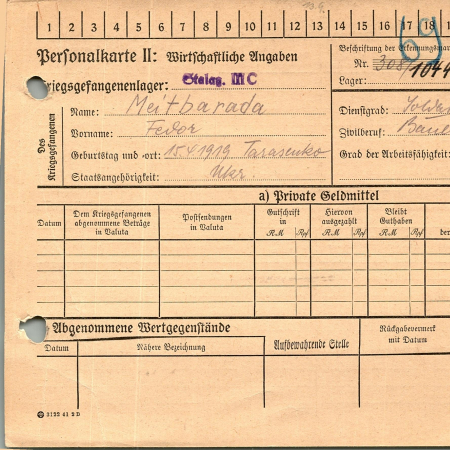 1 2 3 4 5 6 7 8 9 10 11 12 13 14 15 16 17 18
Personalkarte II: Wirtschaftliche Angaben
Beschriftung der Erkennungsmar
Nr. 308/1044
Kriegsgefangenenlager: Stalag. III C
Lager:
Des Kriegsgefangenen
Name: Meitbarada
Dienstgrad: Solda
Vorname: Fedor
Zivilberuf:
Geburtstag und -ort: 15.4.1919 Tarasenko
Grad der Arbeitsfähigkeit:
Staatsangehörigkeit: Ukr.
a) Private Geldmittel
Datum
Dem Kriegsgefangenen abgenommene Beträge in Valuta
Postsendungen in Valuta
Gutschrift in
RM Rpf
Hiervon ausgezahlt
RM Rpf
Bleibt Guthaben
RM Rpf
der
Abgenommene Wertgegenstände
Datum
Nähere Bezeichnung
Aufbewahrende Stelle
Rückgabevermerk mit Datum
3132 41 2 D